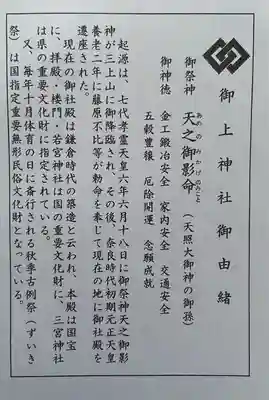 御上神社御由緒
御祭神 天之御影命 (天照大御神の御孫)
あめのみかげのみこと
御神徳 金工鍛冶安全 家内安全 交通安全
五穀豊穣 厄除開運 念願成就
起源は、七代孝霊天皇六年六月十八日に御祭神天之御影
神が三上山に御降臨され、その後、奈良時代初期元正天皇
養老二年に藤原不比等が勅命を奉じて現在の地に御社殿を
遷座された。
現在の御社殿は鎌倉時代の築造と云われ、本殿は国宝
に、拝殿・楼門・若宮神社は国の重要文化財に、三宮神社
は県の重要文化財に指定されている。
又、毎年十月体育の日に斎行される秋季古例祭(ずいき
祭)は国指定重要無形民俗文化財となっている。